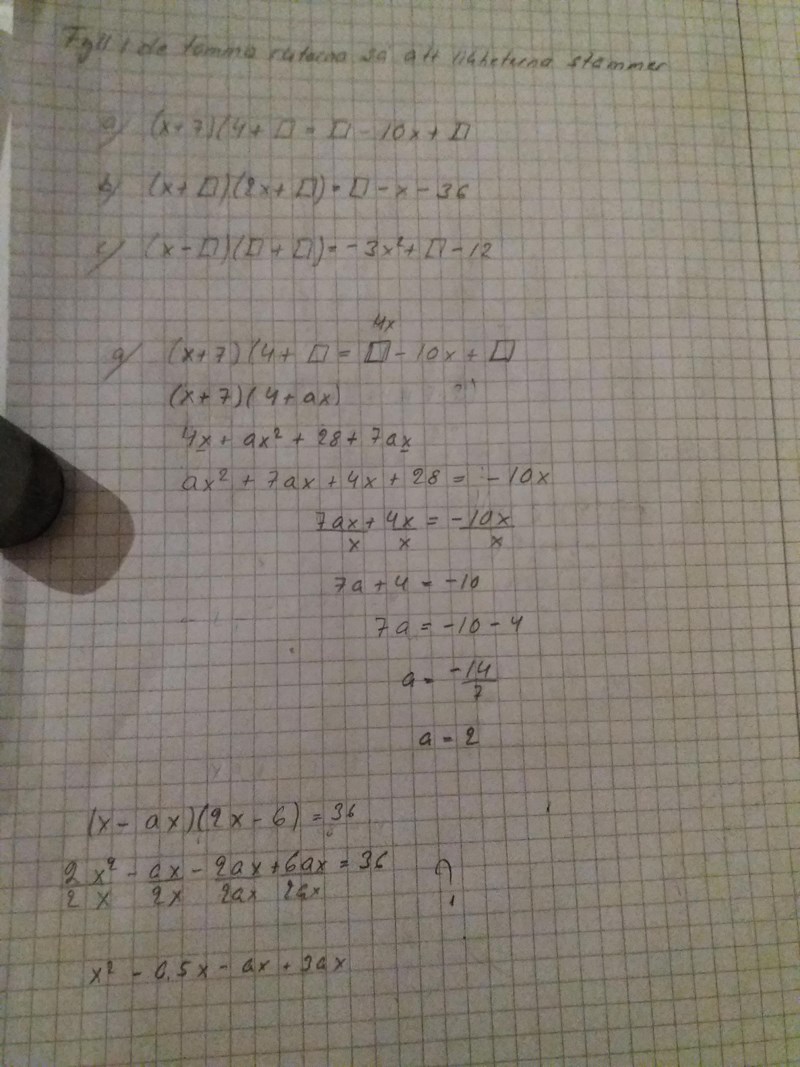 Fyll i de tomma rutorna så att likheterna stämmer
a) (x+7)(4+□ = □ - 10x + □
b) (x+□)(2x+□) = □ - x - 36
c) (x-□)(□+□) = -3x²+□-12
4x
a) (x+7)(4+□ = □ - 10x + □
(x+7)(4+ax)
4x + ax² + 28 + 7ax
ax² + 7ax + 4x + 28 = -10x
7ax/x + 4x/x = -10x/x
7a + 4 = -10
7a = -10 - 4
a = -14/7
a = 2
(x - ax)(2x - 6) = 36
2x²/2x - ax/2x - 2ax/2ax + 6ax/2ax = 36
x² - 0,5x - ax + 3ax